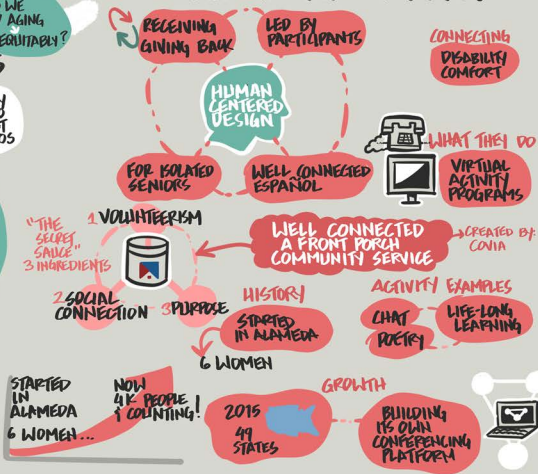 WE
AGING
EQUITABLY?
RECEIVING
GIVING BACK
LED BY
PARTICIPANTS
CONNECTING
DISABILITY
COMFORT
HUMAN
CENTERED
DESIGN
FOR ISOLATED
SENIORS
WELL CONNECTED
ESPAÑOL
WHAT THEY DO
VIRTUAL
ACTIVITY
PROGRAMS
"THE
SECRET
SAUCE"
3 INGREDIENTS
1 VOLUNTEERISM
2 SOCIAL
CONNECTION
3 PURPOSE
WELL CONNECTED
A FRONT PORCH
COMMUNITY SERVICE
CREATED BY:
COVIA
HISTORY
STARTED
IN ALAMEDA
6 WOMEN
ACTIVITY EXAMPLES
CHAT
POETRY
LIFE-LONG
LEARNING
STARTED
IN
ALAMEDA
6 WOMEN...
NOW
4K PEOPLE
& COUNTING!
GROWTH
2015
49
STATES
BUILDING
ITS OWN
CONFERENCING
PLATFORM